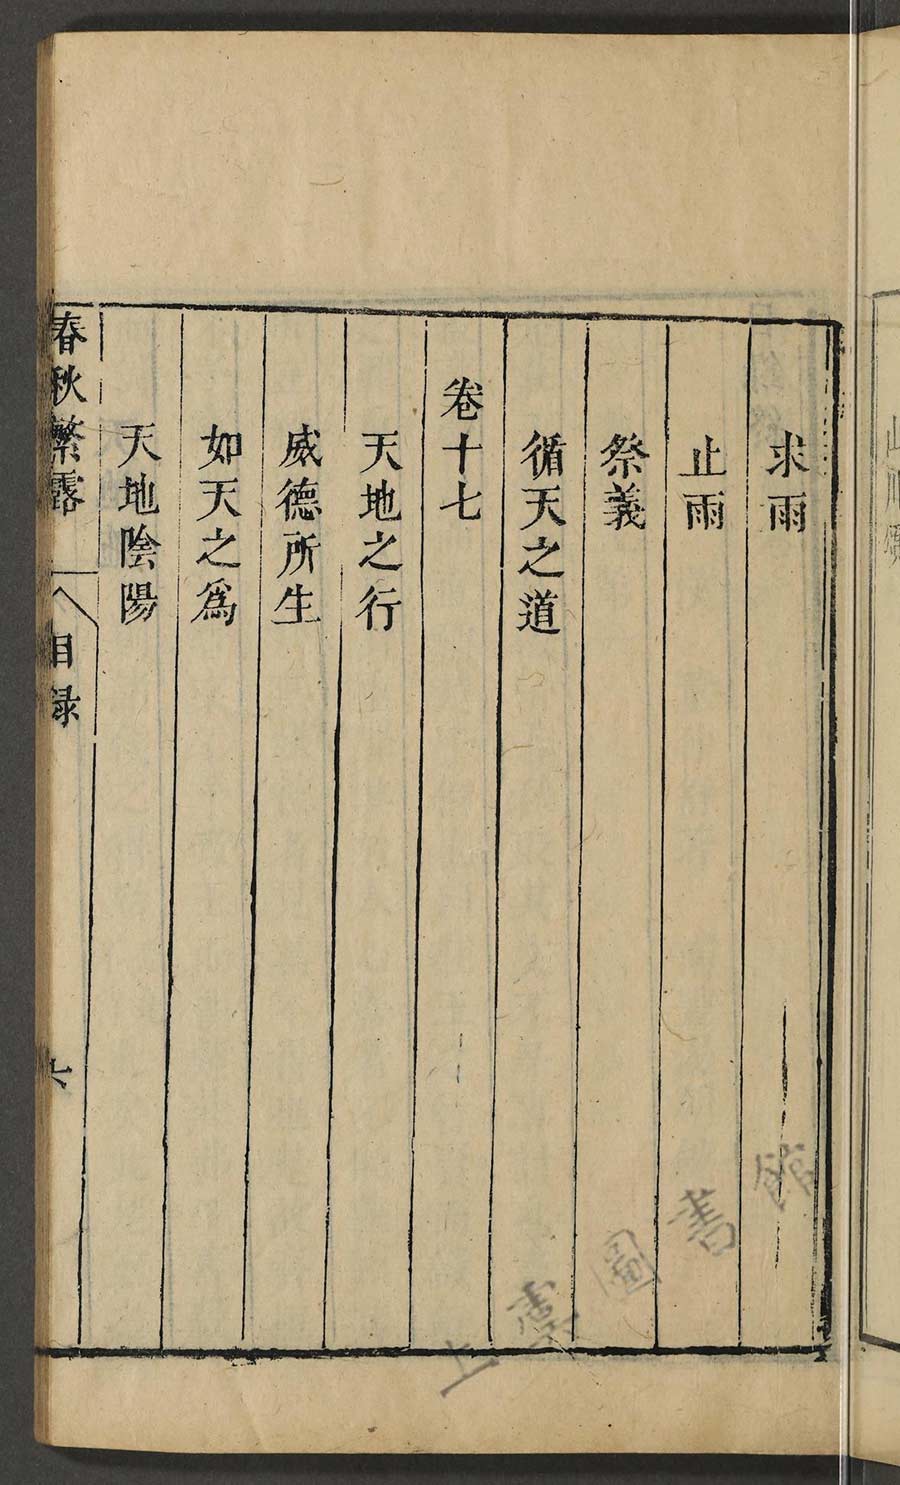 求雨
止雨
祭義
循天之道
卷十七
天地之行
威德所生
如天之爲
天地陰陽
春秋繁露
目録
六
圖書館